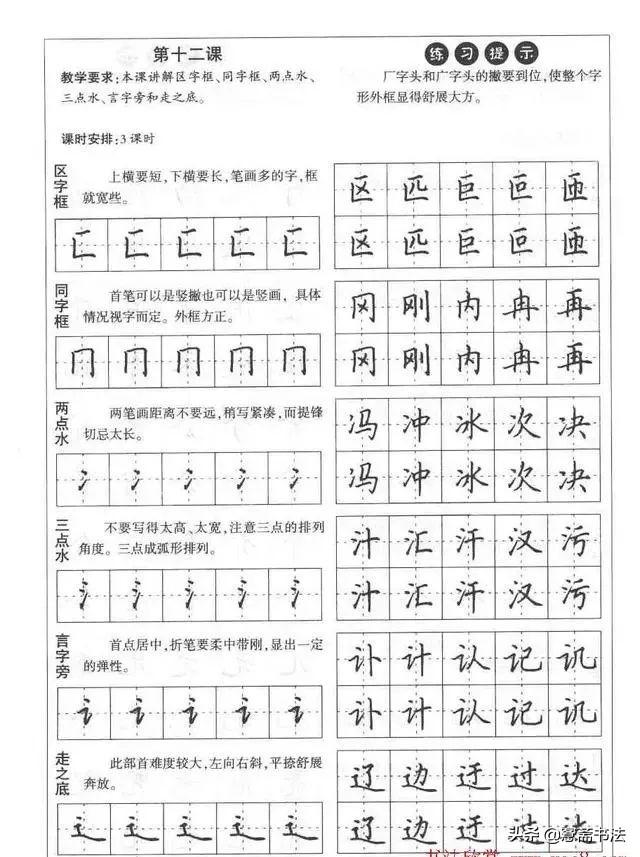 第十二课
教学要求:本课讲解区字框、同字框、两点水、
三点水、言字旁和走之底。
课时安排:3课时
练习提示
厂字头和广字头的撇要到位,使整个字
形外框显得舒展大方。
区字框
上横要短,下横要长,笔画多的字,框
就宽些。
匚匚匚匚匚
区匹巨叵匝
区匹巨叵匝
同字框
首笔可以是竖撇也可以是竖画,具体
情况视字而定。外框方正。
冂冂冂冂冂
冈刚内冉再
冈刚内冉再
两点水
两笔画距离不要远,稍写紧凑,而提锋
切忌太长。
冫冫冫冫冫
冯冲冰次决
冯冲冰次决
三点水
不要写得太高、太宽,注意三点的排列
角度。三点成弧形排列。
氵氵氵氵氵
汁汇汗汉污
汁汇汗汉污
言字旁
首点居中,折笔要柔中带刚,显出一定
的弹性。
讠讠讠讠讠
讣计认记讥
讣计认记讥
走之底
此部首难度较大,左向右斜,平捺舒展
奔放。
辶辶辶辶辶
辽边迂过达
辽边迂过达
头条@慧斋书法